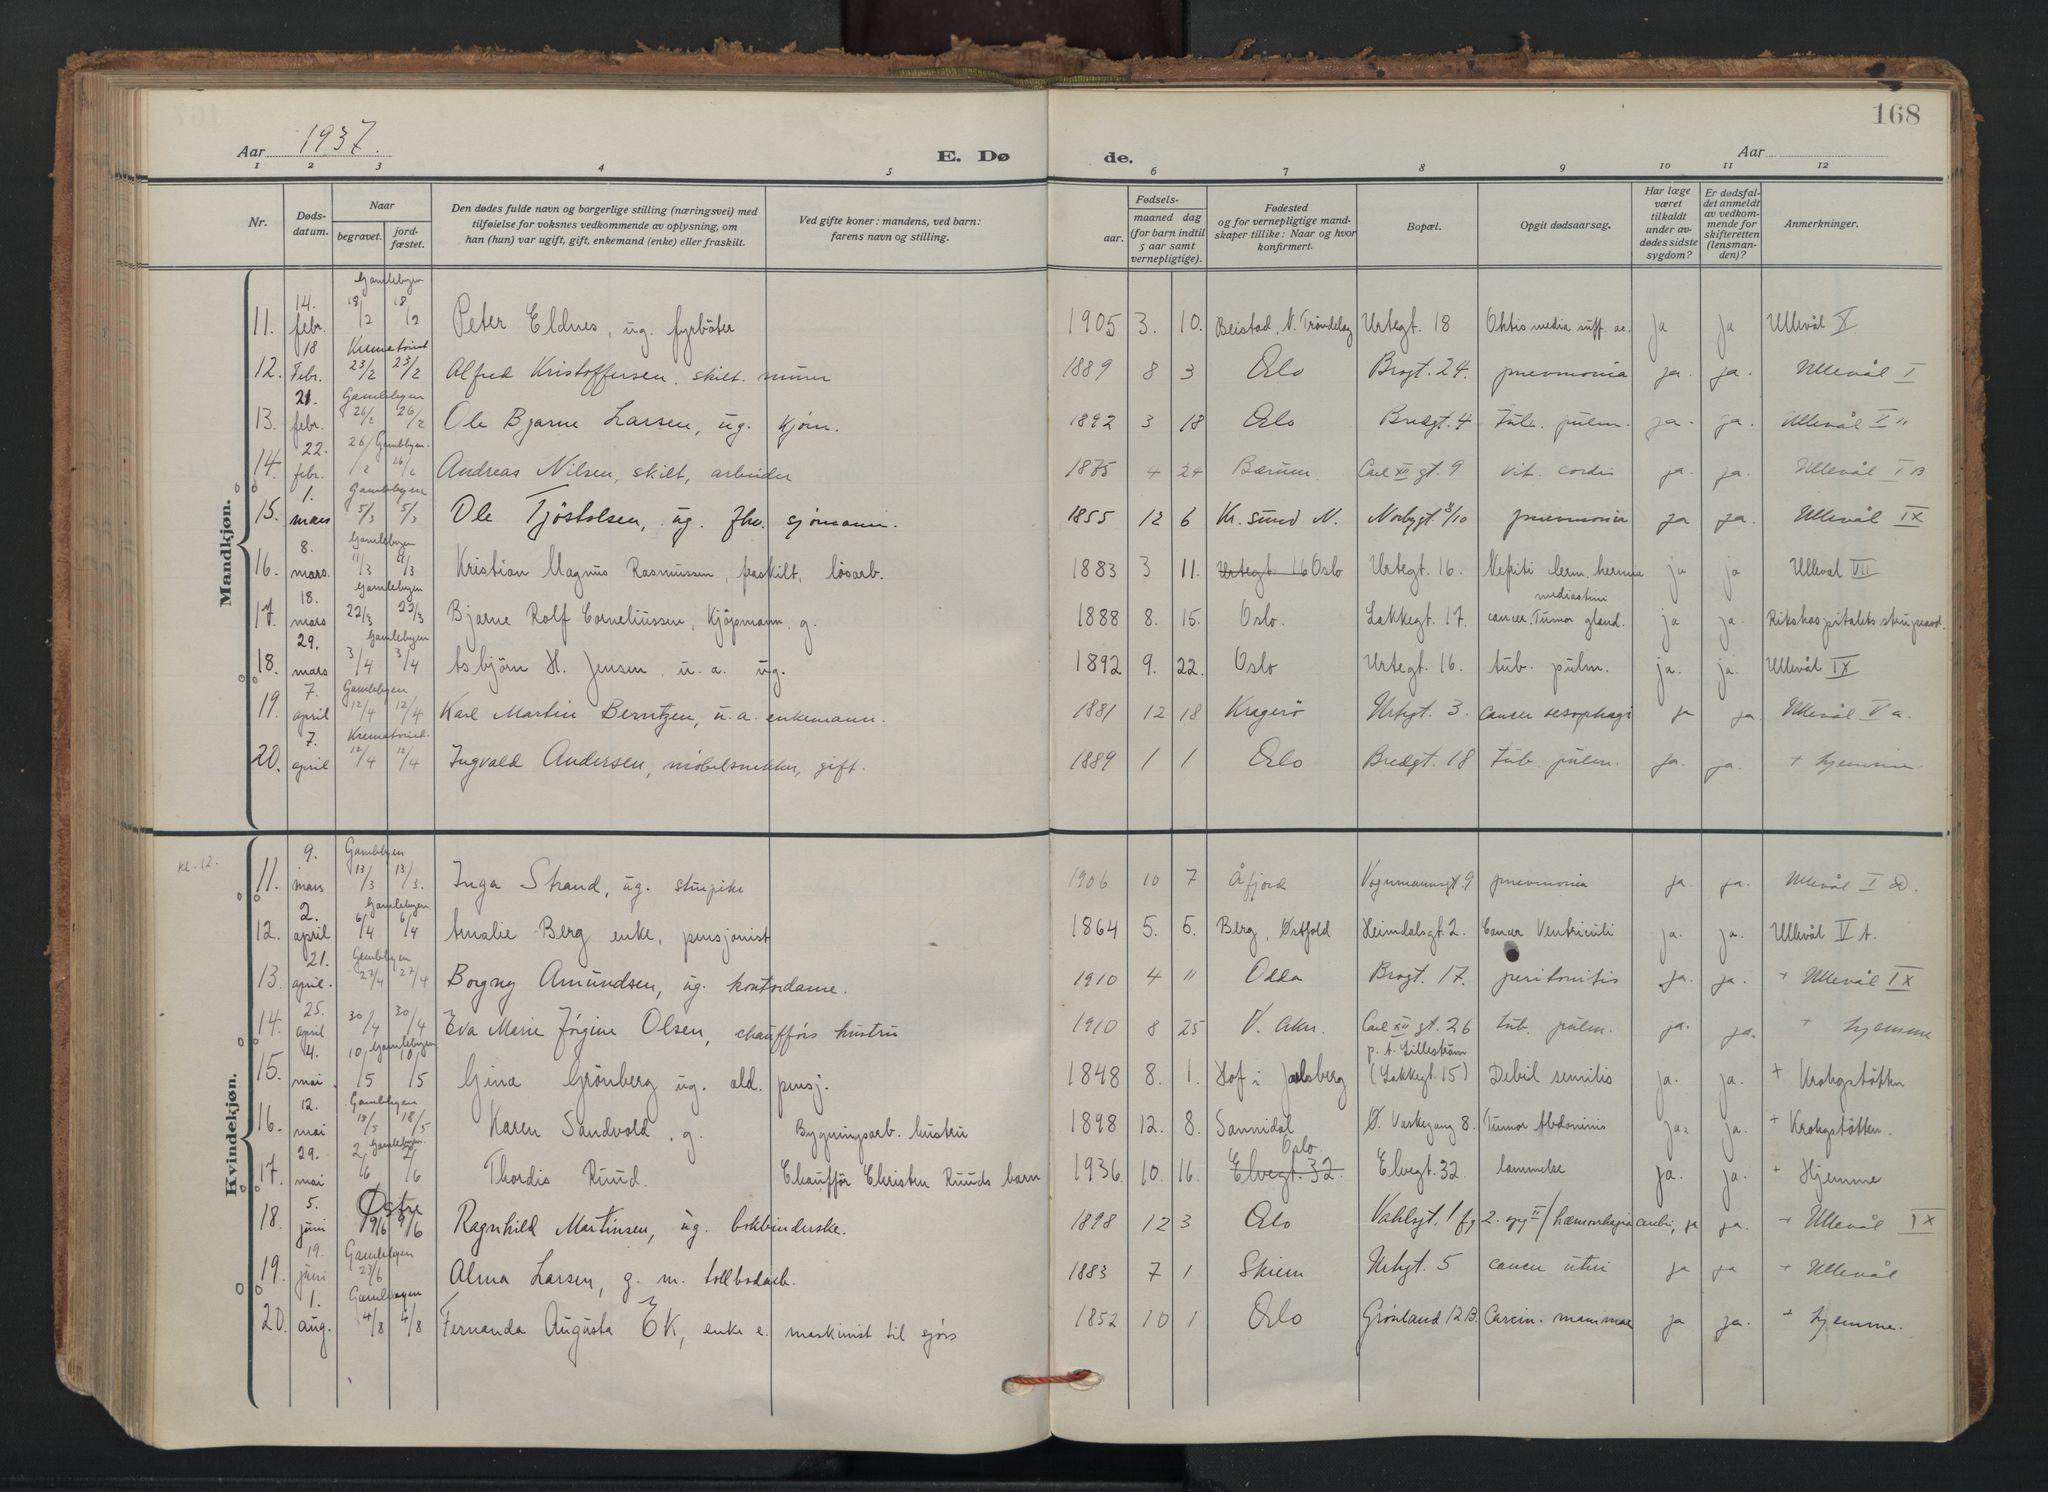 168
Aar 1937.
E. Dø
de.
Aar
1 2 3 4 5 6 7 8 9 10 11 12
Nr.
Dødsdatum.
Naar
begravet.
jordfæstet.
Den dødes fulde navn og borgerlige stilling (næringsvei) med
tilføielse for voksnes vedkommende av oplysning, om
han (hun) var ugift, gift, enkemand (enke) eller fraskilt.
Ved gifte koner: mandens, ved barn:
farens navn og stilling.
Fødsels-
aar.
maaned dag
(for barn indtil
5 aar samt
vernepligtige).
Fødested
og for vernepligtige mand-
skaper tillike: Naar og hvor
konfirmert.
Bopæl.
Opgit dødsaarsag.
Har læge
været
tilkaldt
under av-
dødes sidste
sygdom?
Er dødsfal-
det anmeldt
av vedkom-
mende for
skifteretten
(lensman-
den)?
Anmerkninger.
Mandkjøn.
Gamlebyen
11. 14. febr. 18/2 18/2 Peter Eldnes, ug. fyrbøter 1905 3. 10. Beistad, N. Trøndelag Urtegt 18 Ohtis media suff. ac. ja ja Ullevål X.
Krematoriet
12. 18 Febr. 23/2 23/2 Alfred Kristoffersen, skilt. murer 1889 8 3 Oslo Brogt. 24. pnevmonia ja. ja. Ullevål I
Gamlebyen
13. 21. febr. 26/2 26/2 Ole Bjarne Larsen, ug. kjørn. 1892 3 18 Oslo Bredgt. 4 tub. pulm. ja. ja. Ullevål I "
Gamlebyen.
14. 22. febr. 26/2 26/2 Andreas Nilsen, skilt, arbeider 1875 4 24 Bærum. Carl XII gt. 9 vit. cordis ja. ja. Ullevål I B
Gamlebyen
15. 1. mars 5/3 5/3 Ole Tjöstolsen, ug. fhv. sjømann. 1855 12 6 Kr. sund N. Norbygt. 8/10 pnevmonia ja ja. Ullevål IX
Gamlebyen
16. 8. mars. 11/3 11/3 Kristian Magnus Rasmussen, fraskilt, løsarb. 1883 3 11. Urtegt. 16 Oslo Urtegt. 16. ja ja Ullevål VII
Gamlebyen
mediastini
17. 18. mars 22/3 22/3 Bjarne Rolf Corneliussen, Kjöpmann, g. 1888 8. 15. Oslo. Lakkegt. 17. cancer. Tumor gland. ja ja. Rikshospitalets
Gamlebyen
18. 29. mars 3/4 3/4 Asbjörn H. Jensen, u. a. ug. 1892 9. 22. Oslo Urtegt. 16. tub. pulm. ja. ja. Ullevål IX
Gamlebyen
19. 7. april 12/4 12/4 Karl Martin Berntzen, u. a. enkemann. 1881 12 18 Kragerö Urtegt. 3. Cancer oesophagi ja ja. Ullevål V a.
Krematoriet.
20. 7. april 12/4 12/4 Ingvald Andersen, møbelsnekker, gift. 1889 1 1 Oslo Bredgt. 18 tub. pulm. ja. ja. + hjemme.
Kvindekjøn.
kl. 12.
Gamlebyen
11. 9. mars 13/3 13/3. Inga Strand, ug. stuepike 1906 10 7 Åfjord Vognmannsgt 9 pnevmonia ja. ja. Ullevål I
Gamlebyen.
12. 2. april 6/4 6/4 Amalie Berg enke, pensjonist 1864 5. 5. Berg, Østfold Heimdalsgt 2. Cancer Ventriculi ja. ja. Ullevål V A.
Gamlebyen
13. 21. april. 27/4 27/4 Borgny Amundsen, ug. kontordame. 1910 4 " Odda Brogt. 17. peritonitis ja. ja. + Ullevål IX
14. 25. april 30/4 30/4 Eva Marie Jörgine Olsen, chaufførs hustru 1910 8 25 V. Aker. Carl XII gt. 26 tub. pulm. ja. ja. + hjemme
Gamlebyen
p. t. Lilleström
15. 4. mai 10/5 10/5 Gina Grönberg ug. ald. pensj. 1848 8. 1. Hof i Jarlsberg (Lakkegt. 15) Debil senilis ja. ja. + Krohgstötten
Gamlebyen
16. 12. mai 18/5 18/5 Karen Sandvold, g. Bygningsarb. hustru 1898 12. 8. Sannidal Ø. Vaskegang 8. Tumor Abdominis ja. ja. + Krohgstötten.
Gamlebyen.
Oslo
17. 29. mai 2/6 2/6 Thordis Ruud. Chaufför Christen Ruuds barn 1936 10. 16. Elvegt. 32. Elvegt. 32 lammelse ja. ja. + Hjemme
Østre
18. 5. juni 9/6 9/6 Ragnhild Martinsen, ug. bokbinderske. 1898 12 3 Oslo Vahlsgt. 1 hæmorrhagia cerebri, ja ja. + Ullevål IX
Gamlebyen
19. 19. juni 23/6 Alma Larsen, g. m. tollbodarb. 1883 7 1 Skien Urtegt. 5 cancer uteri ja ja + Ullevål
Gamlebyen
20. 1. aug. 4/8 4/8 Fernanda Augusta Ek, enke e. maskinist til sjøs 1852 10 1 Oslo Grønland 12 B. Carcin. mammae ja ja. + hjemme.